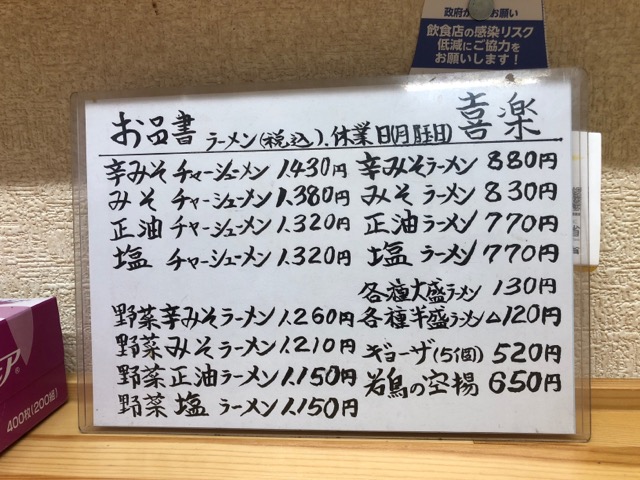 政府からのお願い
飲食店の感染リスク
低減にご協力を
お願いします！
お品書 ラーメン(税込).休業日(月曜日) 喜楽
辛みそ チャーシューメン 1.430円
みそ チャーシューメン 1.380円
正油 チャーシューメン 1.320円
塩 チャーシューメン 1.320円
野菜辛みそラーメン 1.260円
野菜みそラーメン 1.210円
野菜正油ラーメン 1.150円
野菜 塩 ラーメン 1.150円
辛みそラーメン 880円
みそ ラーメン 830円
正油 ラーメン 770円
塩 ラーメン 770円
各種大盛ラーメン 130円
各種半盛ラーメン △120円
ギョーザ(5個) 520円
若鳥の空揚 650円
400枚(200組)